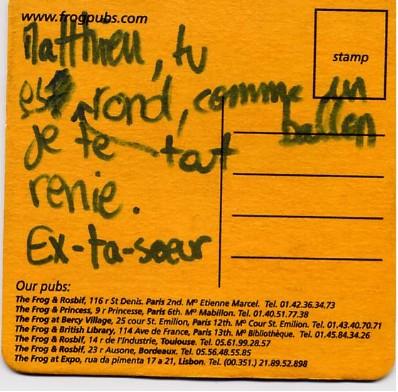 www.frogpubs.com
Matthieu, tu
es rond, comme un
ballon
je te tout
renie.
Ex-ta-soeur
stamp
Our pubs:
The Frog & Rosbif, 116 r St Denis. Paris 2nd. M° Etienne Marcel. Tel. 01.42.36.34.73
The Frog & Princess, 9 r Princesse, Paris 6th. M° Mabillon. Tel. 01.40.51.77.38
The Frog at Bercy Village, 25 cour St. Emilion, Paris 12th. M° Cour St. Emilion. Tel. 01.43.40.70.71
The Frog & British Library, 114 Ave de France, Paris 13th. M° Bibliothèque. Tel. 01.45.84.34.26
The Frog & Rosbif, 14 r de l'Industrie, Toulouse. Tel. 05.61.99.28.57
The Frog & Rosbif, 23 r Ausone, Bordeaux. Tel. 05.56.48.55.85
The Frog at Expo, rua da pimenta 17 a 21, Lisbon. Tel. (00.351.) 21.89.52.898